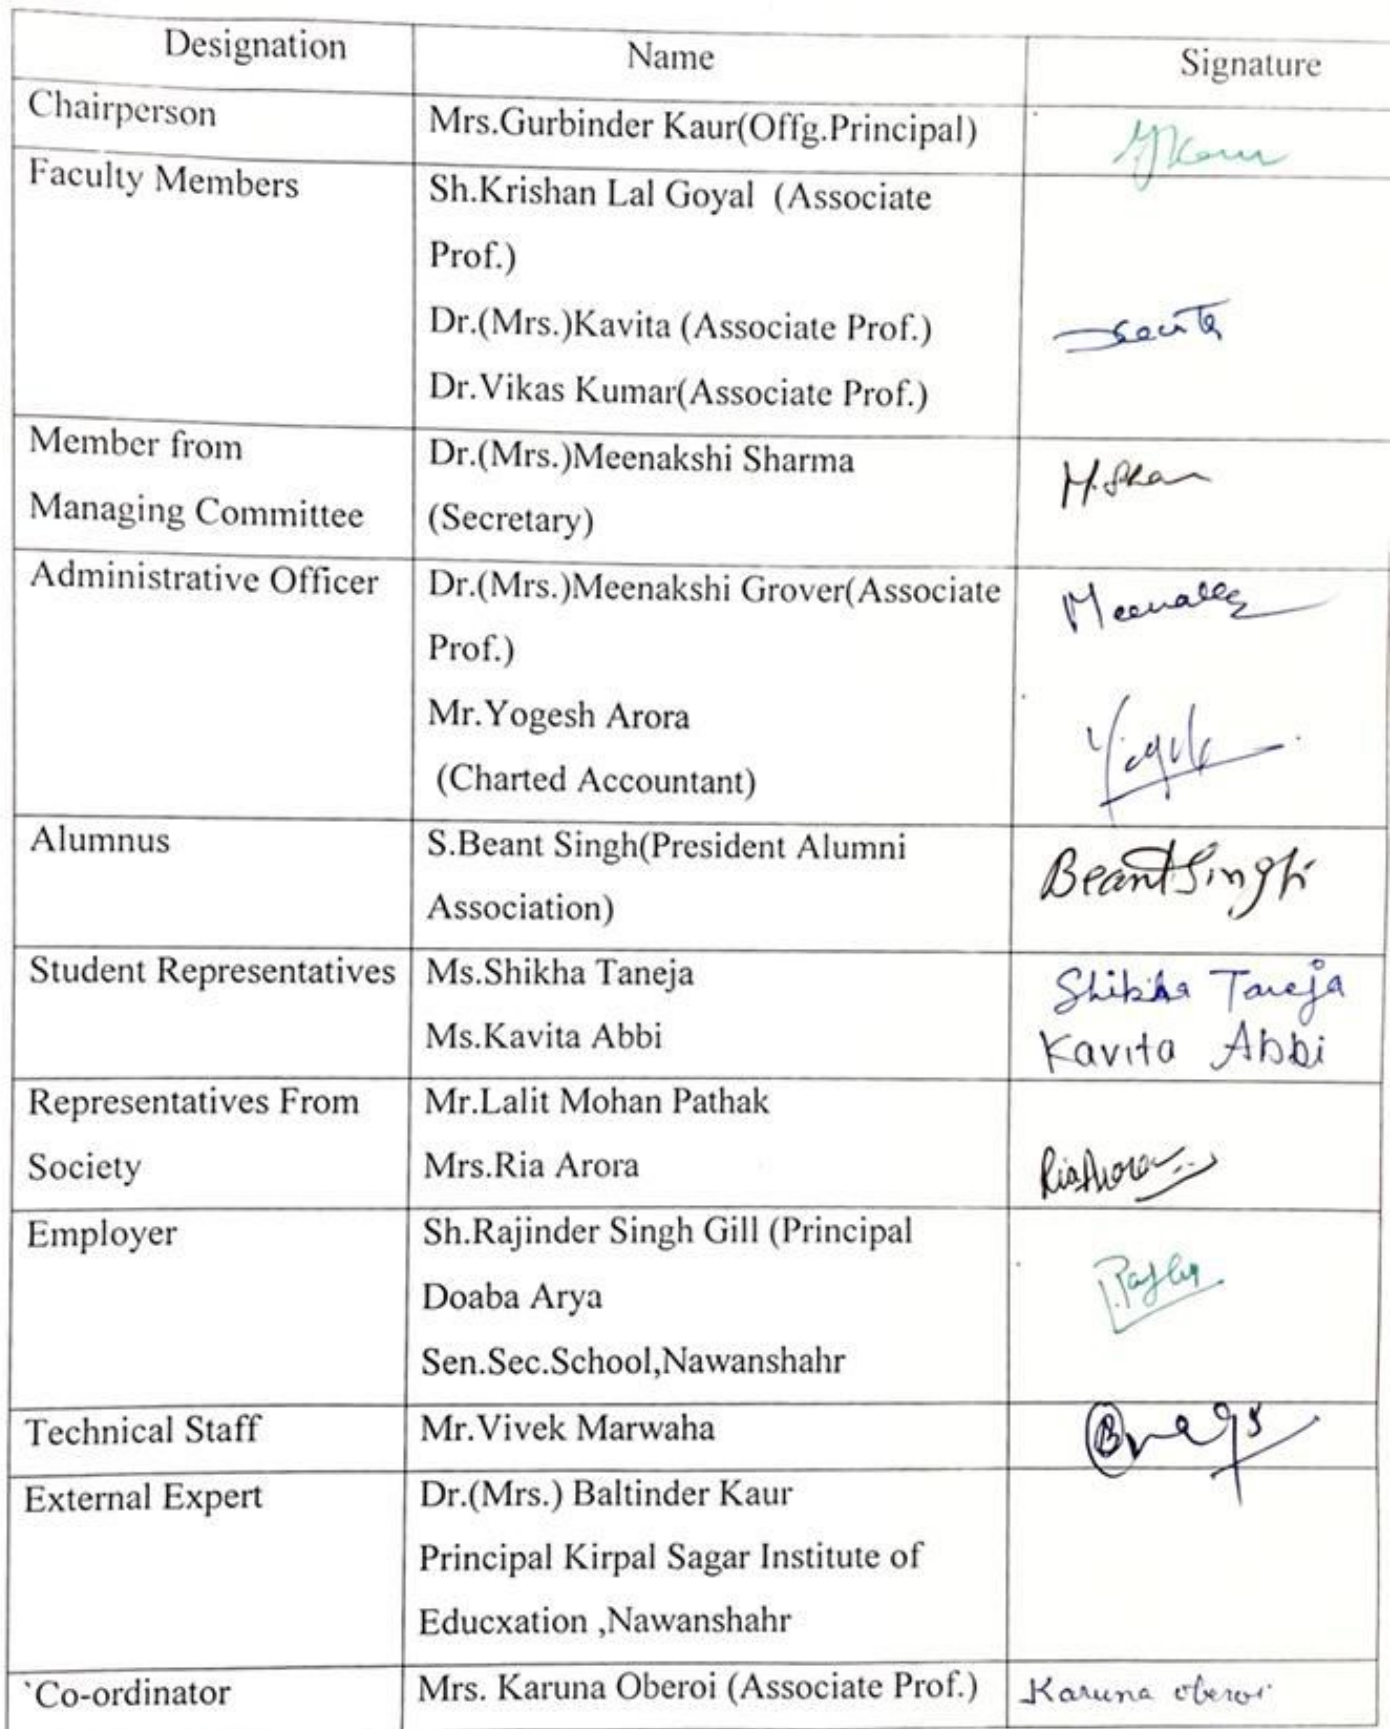 Designation Name Signature
Chairperson Mrs.Gurbinder Kaur(Offg.Principal)
Faculty Members Sh.Krishan Lal Goyal (Associate
Prof.)
Dr.(Mrs.)Kavita (Associate Prof.)
Dr.Vikas Kumar(Associate Prof.)
Member from Dr.(Mrs.)Meenakshi Sharma
Managing Committee (Secretary)
Administrative Officer Dr.(Mrs.)Meenakshi Grover(Associate
Prof.)
Mr.Yogesh Arora
(Charted Accountant)
Alumnus S.Beant Singh(President Alumni Beant Singh
Association)
Student Representatives Ms.Shikha Taneja Shikha Taneja
Ms.Kavita Abbi Kavita Abbi
Representatives From Mr.Lalit Mohan Pathak
Society Mrs.Ria Arora Ria Arora
Employer Sh.Rajinder Singh Gill (Principal
Doaba Arya
Sen.Sec.School,Nawanshahr
Technical Staff Mr.Vivek Marwaha
External Expert Dr.(Mrs.) Baltinder Kaur
Principal Kirpal Sagar Institute of
Educxation ,Nawanshahr
`Co-ordinator Mrs. Karuna Oberoi (Associate Prof.) Karuna oberoi